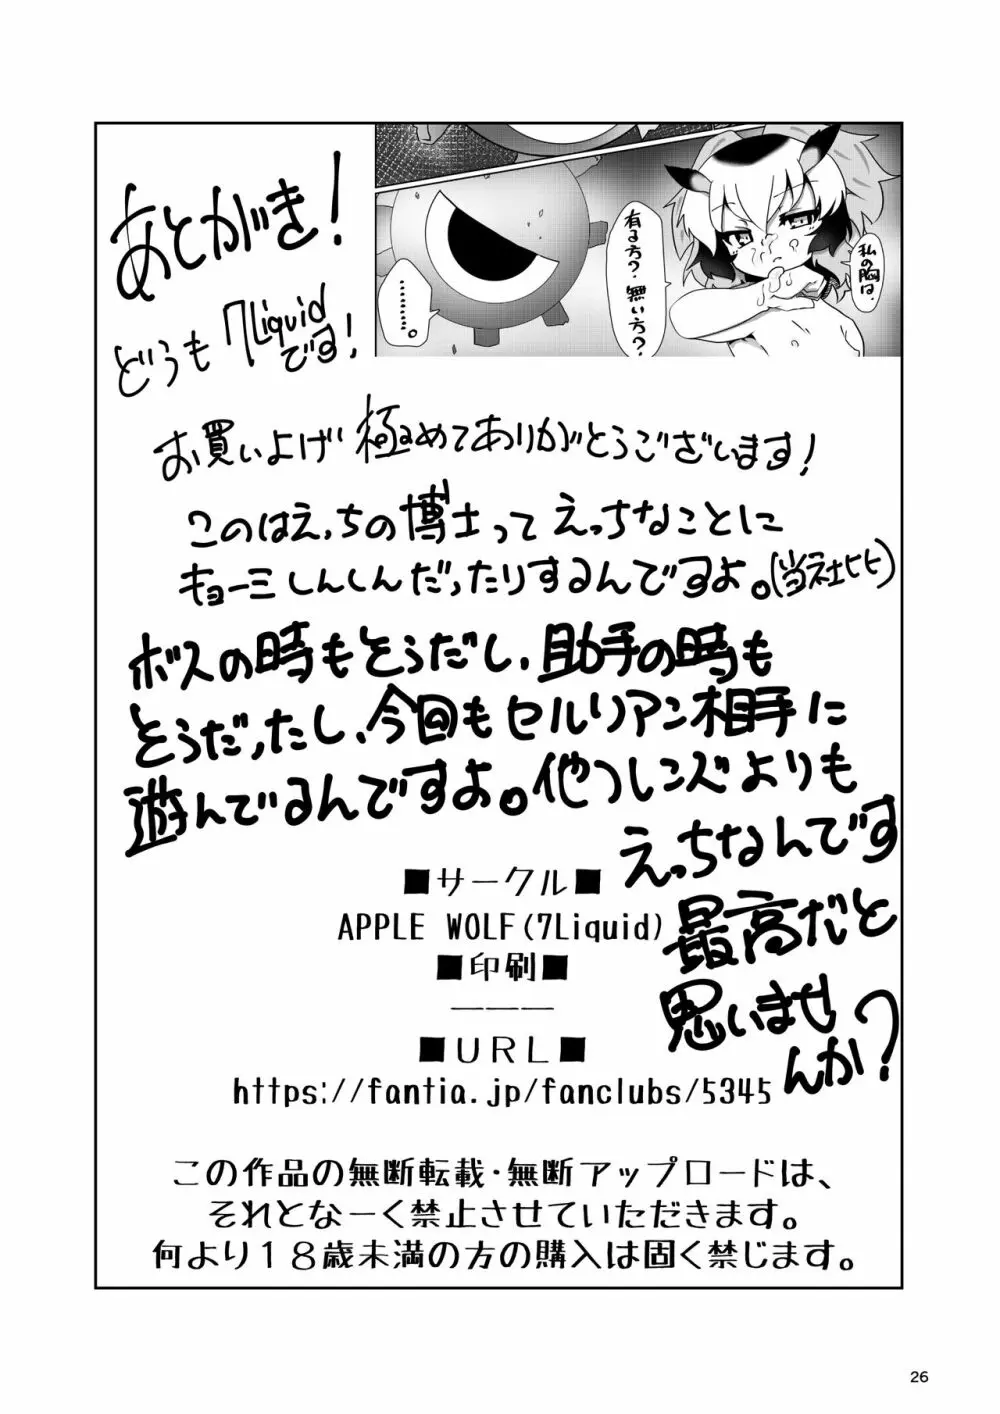 あとがき！
どうも 7Liquid
です！
私の胸は、
有る方？無い方？
………。
お買いよげ 極めてありがとうございます！
このはえっちの博士って えっちなことに
キョーミしんしんだったりするんですよ。(当社ヒヒ)
ボスの時もそうだし、助手の時も
そうだったし、今回もセルリアン相手に
遊んでるんですよ。他フレンズよりも
えっちなんです
最高だと
思いませ
んか？
■サークル■
APPLE WOLF(7Liquid)
■印刷■
———
■URL■
https://fantia.jp/fanclubs/5345
この作品の無断転載・無断アップロードは、
それとなーく禁止させていただきます。
何より１８歳未満の方の購入は固く禁じます。
26